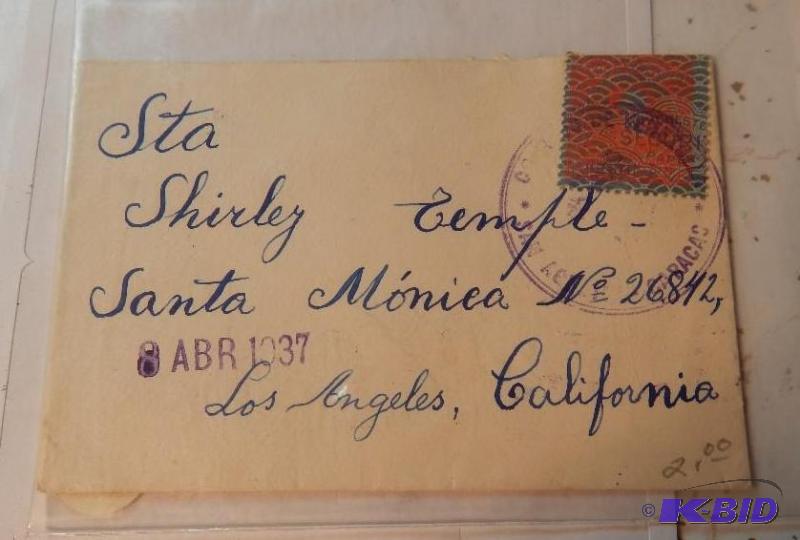 Sta
Shirley Temple-
Santa Mónica Nº 26842,
8 ABR 1937
Los Angeles, California
CARACAS
2.00
© K-BID